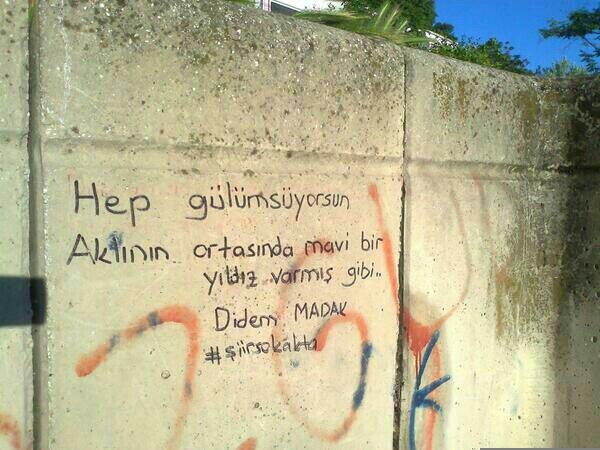 Hep gülümsüyorsun
Aklının ortasında mavi bir
yıldız varmış gibi..
Didem MADAK
#şiirsokakta